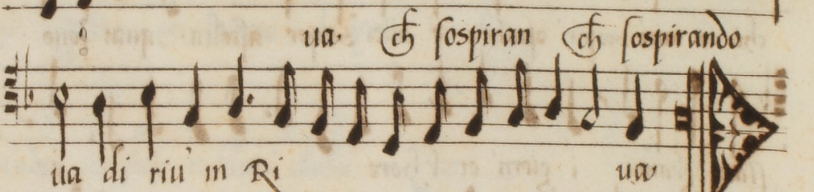 ua ch sospiran ch sospirando
ua di riu in Ri ua